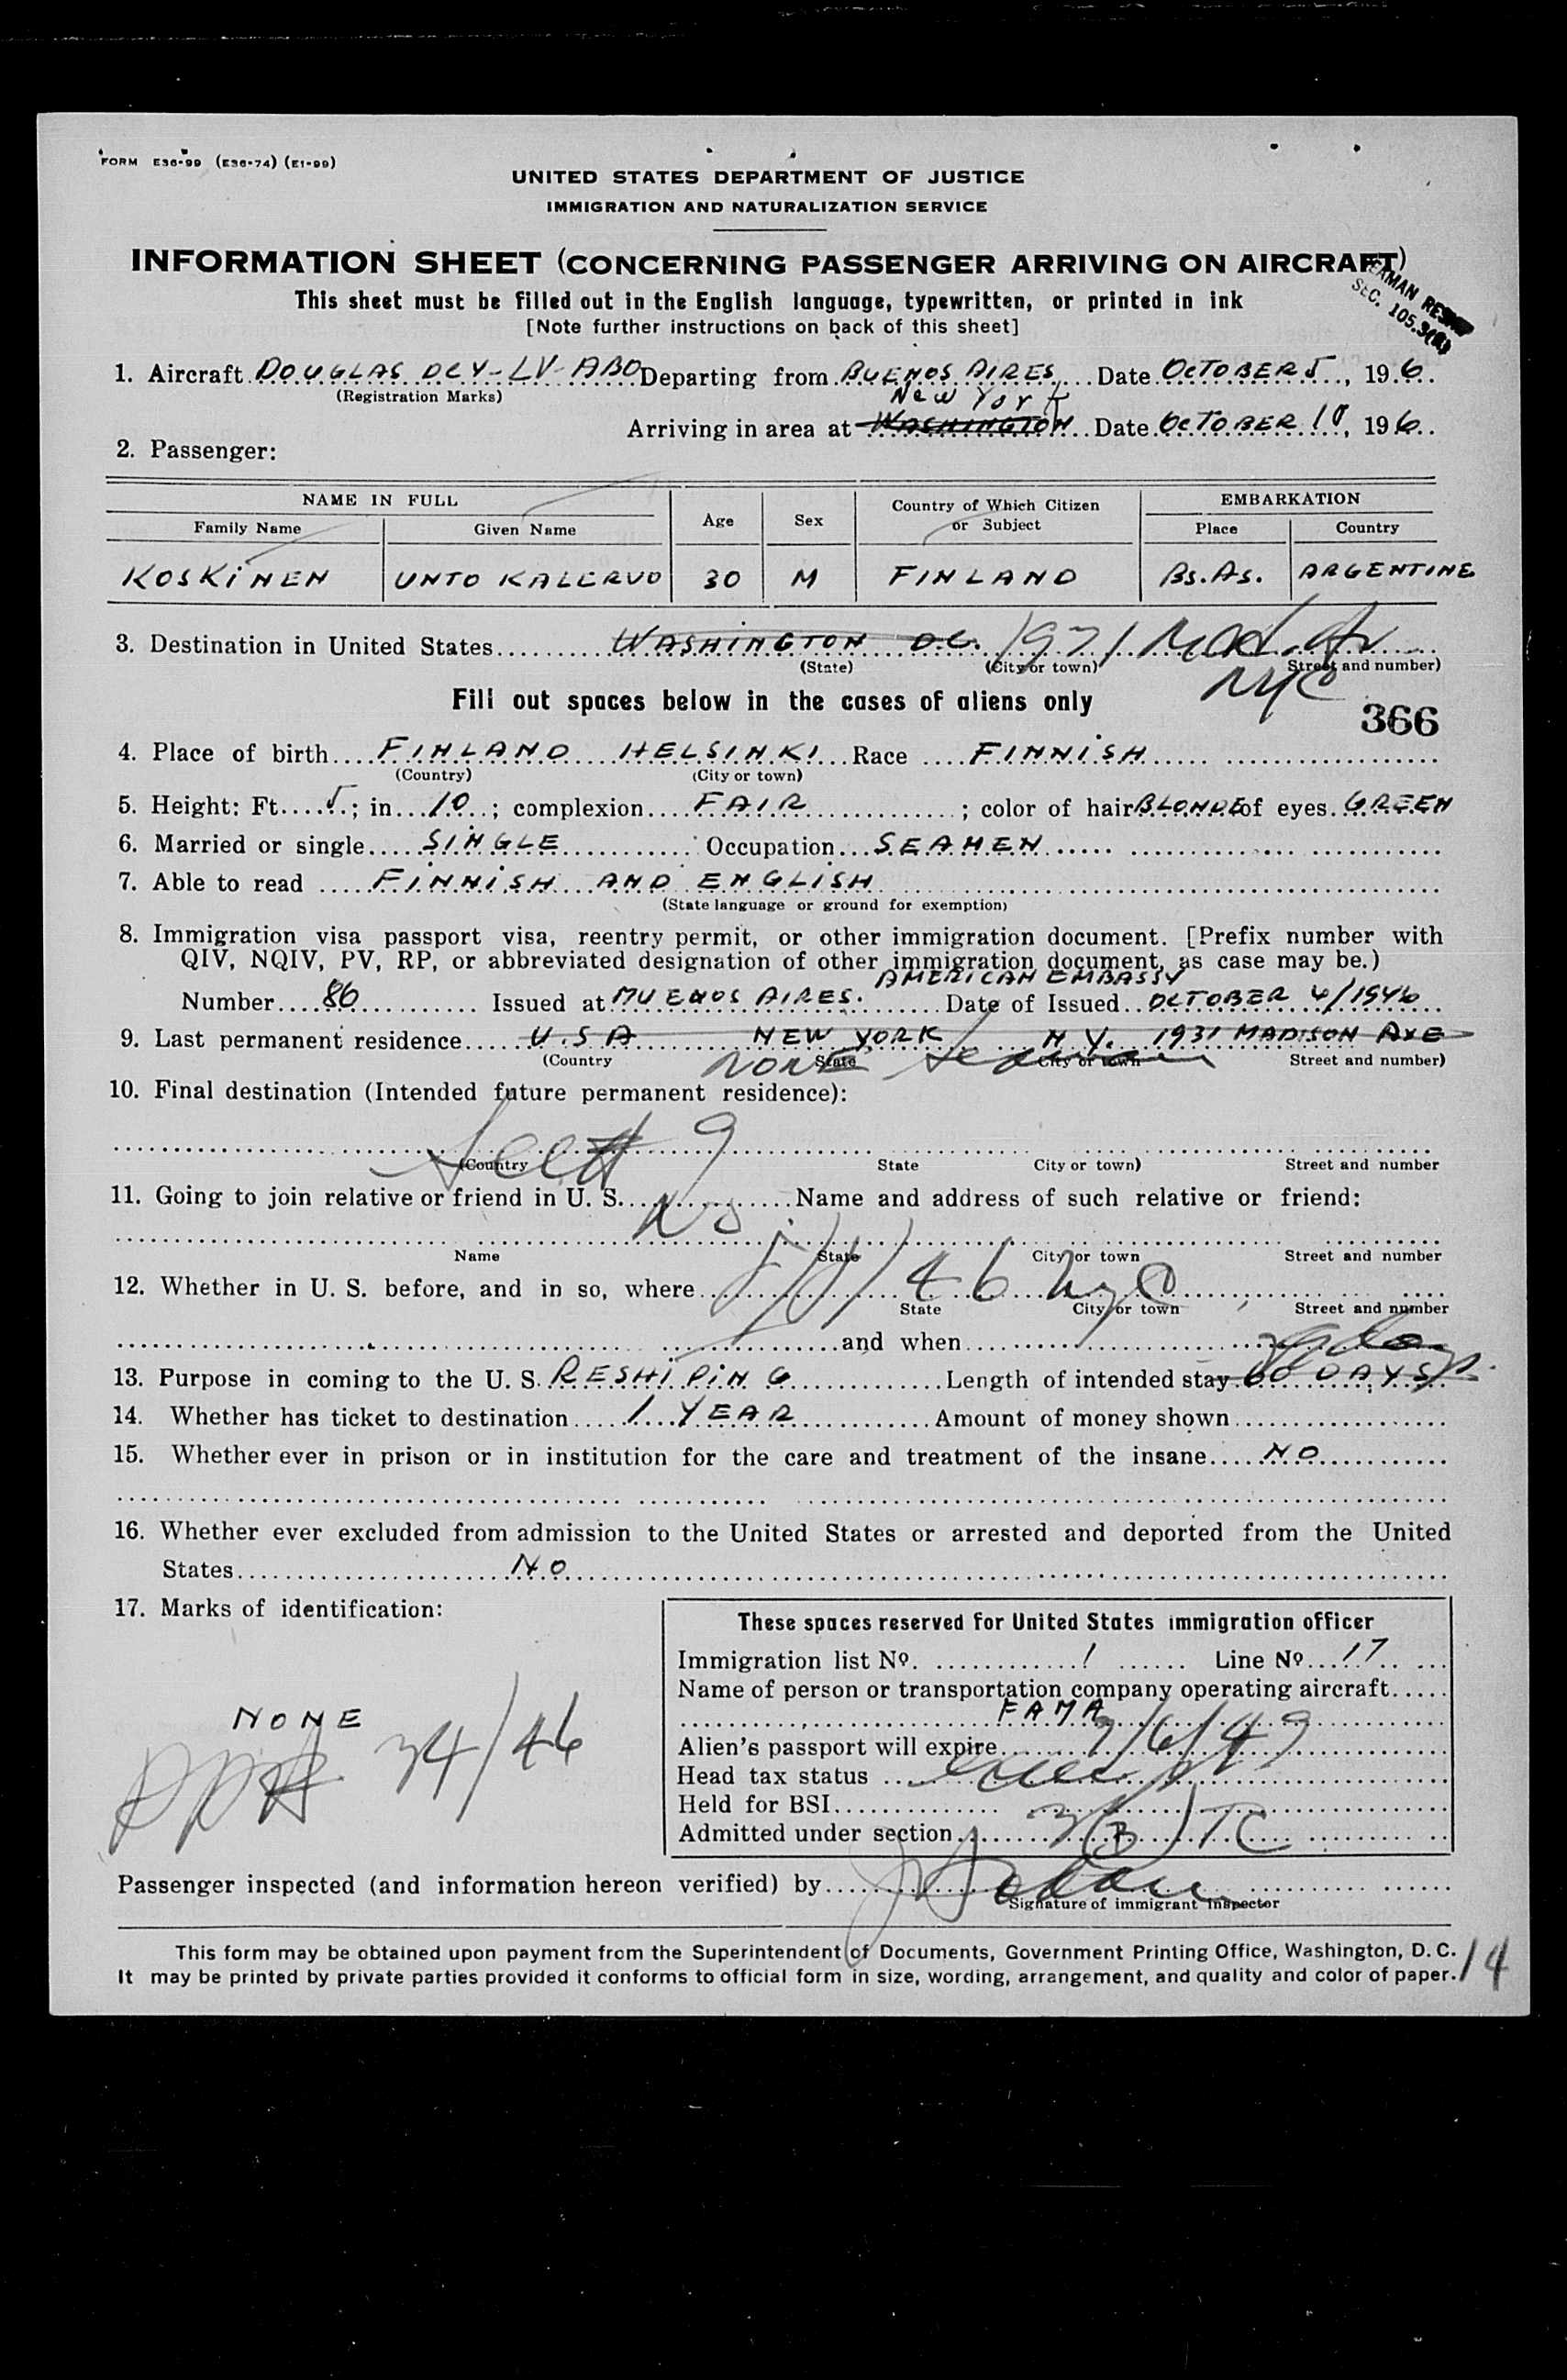 FORM E36-99 (E36-74) (E1-99)
UNITED STATES DEPARTMENT OF JUSTICE
IMMIGRATION AND NATURALIZATION SERVICE
INFORMATION SHEET (CONCERNING PASSENGER ARRIVING ON AIRCRAFT)
SEC. 105.3
This sheet must be filled out in the English language, typewritten, or printed in ink
[Note further instructions on back of this sheet]
1. Aircraft DOUGLAS DCY-LV-ABO Departing from BUENOS AIRES Date OCTOBER 5, 19 6
(Registration Marks)
New York
Arriving in area at WASHINGTON Date OCTOBER 10, 19 6
2. Passenger:
NAME IN FULL Age Sex Country of Which Citizen or Subject EMBARKATION
Family Name Given Name Place Country
KOSKINEN UNTO KALERVO 30 M FINLAND Bs.As. ARGENTINE
3. Destination in United States WASHINGTON D.C. 1931 Mad. Av
(State) (City or town) Street and number)
NYC
Fill out spaces below in the cases of aliens only
366
4. Place of birth FINLAND HELSINKI Race FINNISH
(Country) (City or town)
5. Height: Ft. 5; in. 10; complexion FAIR; color of hair BLONDE of eyes GREEN
6. Married or single SINGLE Occupation SEAMEN
7. Able to read FINNISH AND ENGLISH
(State language or ground for exemption)
8. Immigration visa passport visa, reentry permit, or other immigration document. [Prefix number with
QIV, NQIV, PV, RP, or abbreviated designation of other immigration document, as case may be.)
AMERICAN EMBASSY
Number 86 Issued at BUENOS AIRES. Date of Issued OCTOBER 4/1946
9. Last permanent residence U.S A NEW YORK N Y. 1931 MADISON AXE
(Country State City or town Street and number)
NONE Seaman
10. Final destination (Intended future permanent residence):
See # 9
(Country State City or town) Street and number
11. Going to join relative or friend in U. S. No Name and address of such relative or friend:
Name State City or town Street and number
12. Whether in U. S. before, and in so, where 46 NYC
State City or town Street and number
and when
13. Purpose in coming to the U. S. RESHIPING Length of intended stay 60 DAYS
14. Whether has ticket to destination 1 YEAR Amount of money shown
15. Whether ever in prison or in institution for the care and treatment of the insane NO
16. Whether ever excluded from admission to the United States or arrested and deported from the United
States NO
17. Marks of identification:
NONE
34/46
These spaces reserved for United States immigration officer
Immigration list No. 1 Line No 17
Name of person or transportation company operating aircraft
FAMA
Alien's passport will expire 7/6/49
Head tax status
Held for BSI
Admitted under section 3(B) TC
Passenger inspected (and information hereon verified) by
Signature of immigrant inspector
This form may be obtained upon payment from the Superintendent of Documents, Government Printing Office, Washington, D. C.
It may be printed by private parties provided it conforms to official form in size, wording, arrangement, and quality and color of paper.
14